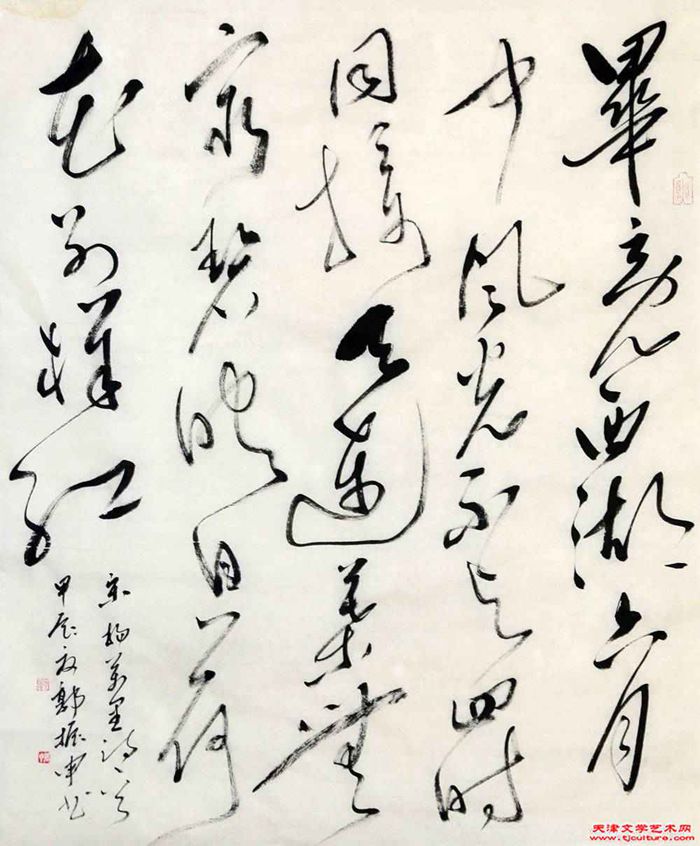 畢竟西湖六月
中風光不与四时
同接天蓮葉無
窮碧映日荷
花别樣红
宋楊萬里詩
甲 郭振 书
天津文学艺术网
www.tjculture.com